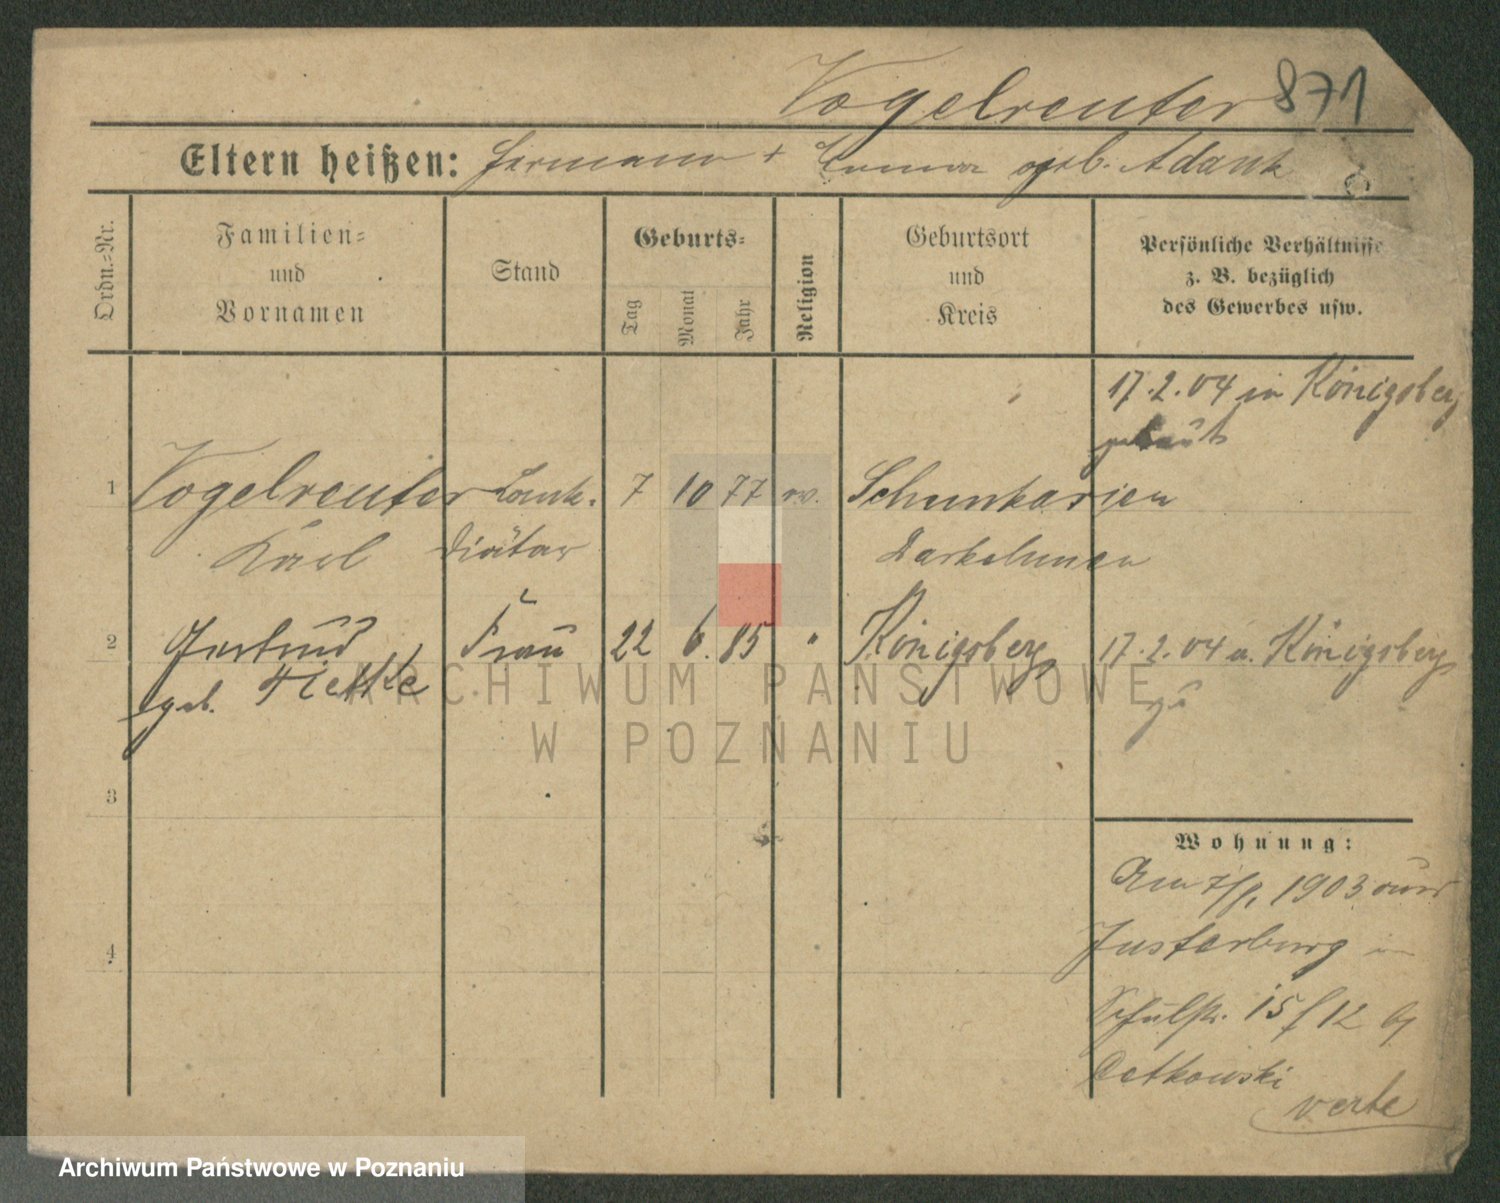 Vogelreuter 871
Eltern heißen: Hermann + Emma geb. Adank
Ordn.-Nr.
Familien-
und
Vornamen
Stand
Geburts-
Tag
Monat
Jahr
Religion
Geburtsort
und
Kreis
Persönliche Verhältnisse
z. B. bezüglich
des Gewerbes usw.
17.2.04 in Königsberg
getraut
1 Vogelreuter Bank- 7 10 77 ev. Schunkarien
Karl Diätar Darkehmen
2 Gertrud Frau 22 6. 85 " Königsberg 17.2.04 Königsberg
geb. Fietke
3
4
Wohnung:
Am 1903 aus
Insterburg in
Schulstr. 15 12
verte
ARCHIWUM PAŃSTWOWE
W POZNANIU
Archiwum Państwowe w Poznaniu